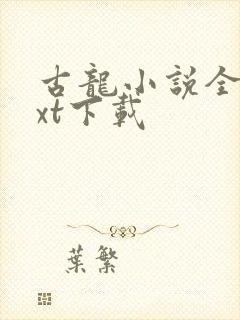 古龍小說全
xt下載
葉繁